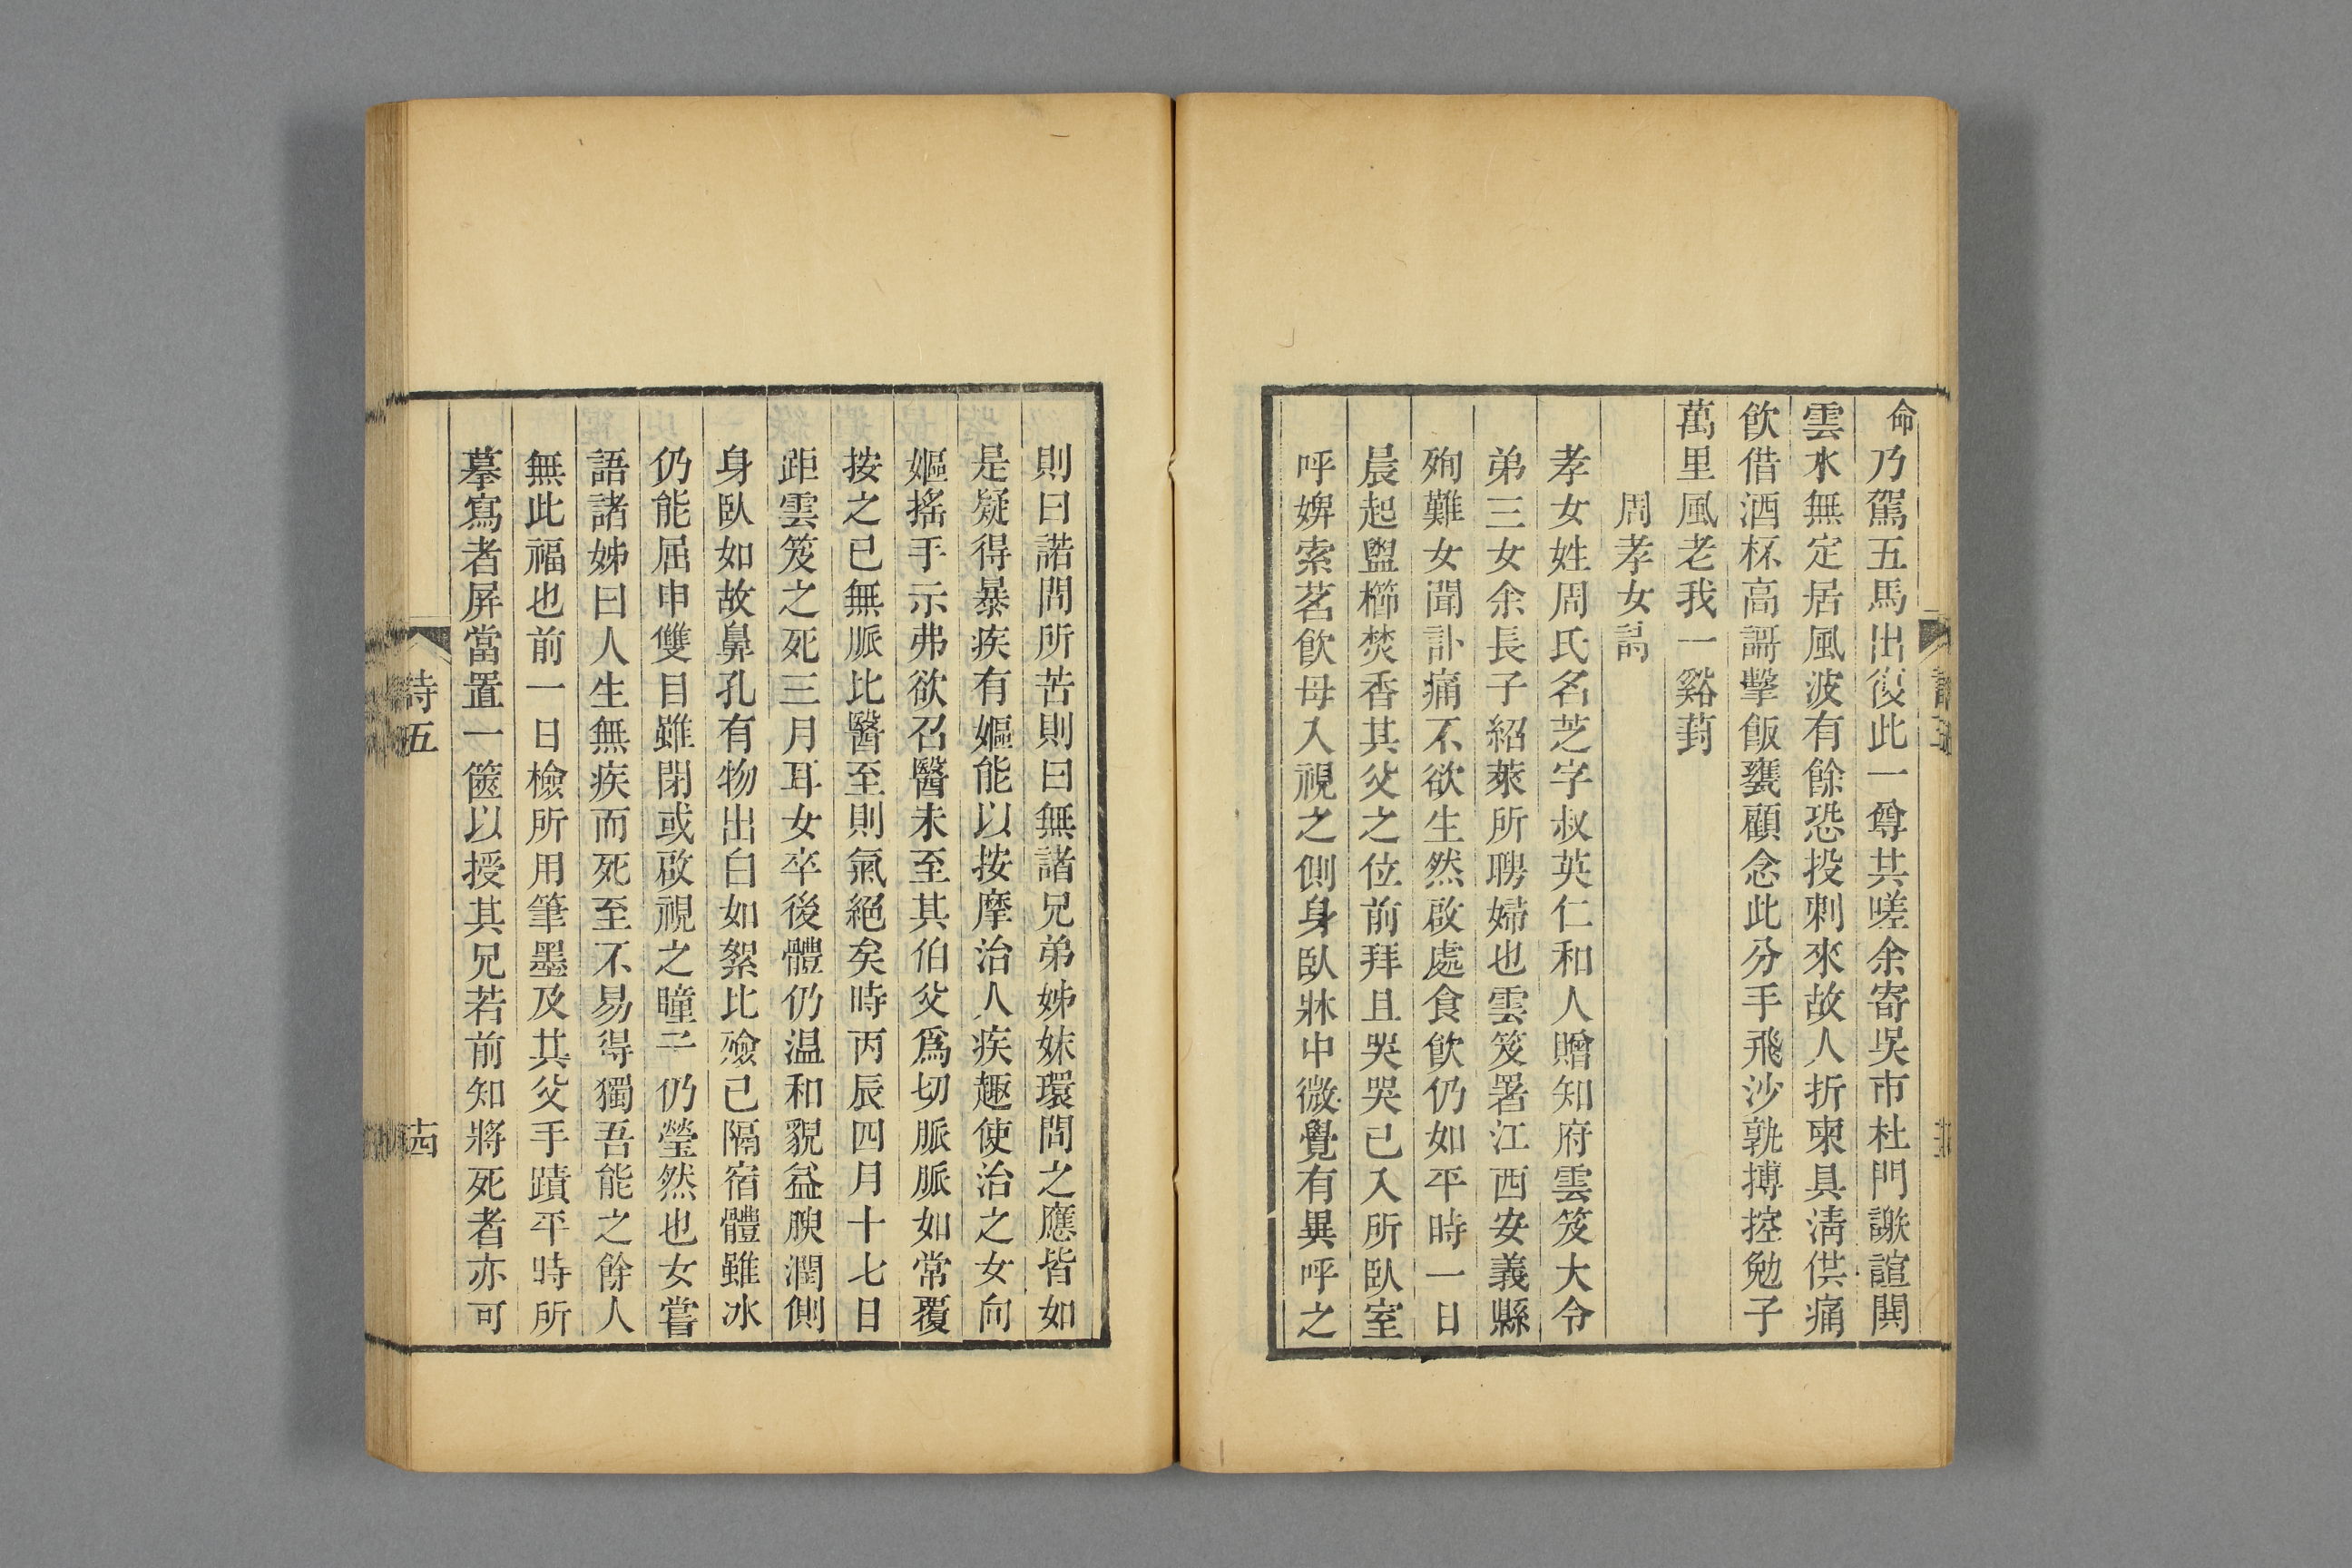 命乃駕五馬出復此一尊共嗟余寄吳市杜門謝諠闐
雲水無定居風波有餘恐投刺來故人折柬具淸供痛
飮借酒杯高謌擊飯甕顧念此分手飛沙孰摶控勉子
萬里風老我一谿葑
周孝女詩
孝女姓周氏名芝字叔英仁和人贈知府雲笈大令
弟三女余長子紹萊所聘婦也雲笈署江西安義縣
殉難女聞訃痛不欲生然啟處食飮仍如平時一日
晨起盥櫛焚香其父之位前拜且哭哭已入所臥室
呼婢索茗飮母入視之側身臥牀中微覺有異呼之
則曰諾問所苦則曰無諸兄弟姊妹環問之應皆如
是疑得暴疾有嫗能以按摩治人疾趣使治之女向
嫗搖手示弗欲召醫未至其伯父爲切脈脈如常覆
按之已無脈比醫至則氣絕矣時丙辰四月十七日
距雲笈之死三月耳女卒後體仍温和貎益腴潤側
身臥如故鼻孔有物出白如絮比殮已隔宿體雖冰
仍能屈申雙目雖閉或啟視之瞳子仍瑩然也女嘗
語諸姊曰人生無疾而死至不易得獨吾能之餘人
無此福也前一日檢所用筆墨及其父手蹟平時所
摹寫者屏當置一篋以授其兄若前知將死者亦可
詩五
十四